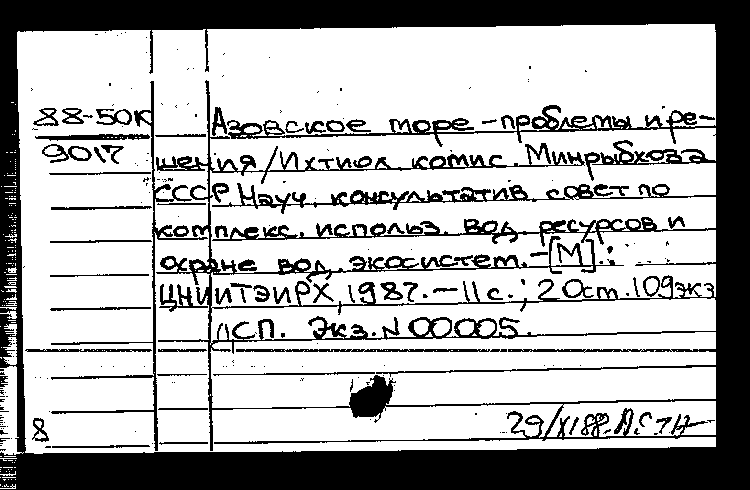 88-50К Азовское море - проблемы и ре-
9017 шения/Ихтиол. комис. Минрыбхоза
СССР. Науч. консультатив. совет по
комплекс. использ. вод. ресурсов и
охране вод. экосистем. - [М].:
ЦНИИТЭИРХ, 1987. - 11 с.; 20 см. 109 экз
ДСП. Экз. N 00005.
8 29/XI 88.